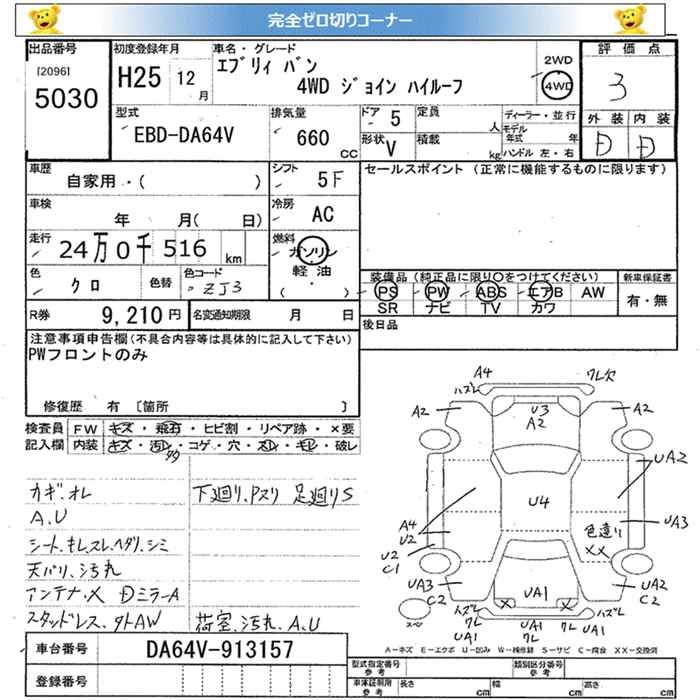 完全ゼロ切りコーナー
出品番号 初度登録年月 車名・グレード 評価点
[2096] 5030
H25 12 月
エブリィ バン
4WD ジョイン ハイルーフ
2WD
4WD
3
型式 排気量 ドア 5 定員 人 ディーラー・並行 外装 内装
モデル年式 年
EBD-DA64V 660 CC 形状 V 積載 kg ハンドル 左・右 D D
車歴 シフト セールスポイント (正常に機能するものに限ります)
自家用・( ) 5F
車検 冷房
年 月( 日) AC
走行 燃料
24万0千516 km ガソリン
軽油
・
( )
色 色替 色コード
クロ ZJ3
装備品 (純正品に限り○をつけてください) 新車保証書
PS PW ABS エアB AW 有・無
SR ナビ TV カワ
R券 9,210円 名変通知期限 月 日 後日品
注意事項申告欄(不具合内容等は具体的に記入して下さい)
PWフロントのみ
修復歴 有 〔箇所 〕
検査員 FW キズ・飛石・ヒビ割・リペア跡・×要
記入欄 内装 キズ・汚レ・コゲ・穴・スレ・キレ・破レ
カギ.オレ
A.U
シート.キレスレ.ヘタリ.シミ
天バリ.汚れ
アンテナ.X Dミラ-A
スタッドレス.タトAW
下廻り.Pスリ 足廻りS
荷室.汚れ.A.U
A4 クレ欠
ハズレ
A2 U3 A2
A2
UA2
U4
A4
U2
色違い
XX
UA3
U2
C1
UA3
C2
UA1
UA2
C2
X X
ハズレ クレ UA1 クレ ハズレ
UA1 クレ UA1
A-キズ E-エクボ U-凹み W-補修跡 S-サビ C-腐食 XX-交換済
車台番号 DA64V-913157
登録番号
型式指定番号 参考 類別区分番号 参考
車体証明用 参考 長さ cm 幅 cm 高さ cm